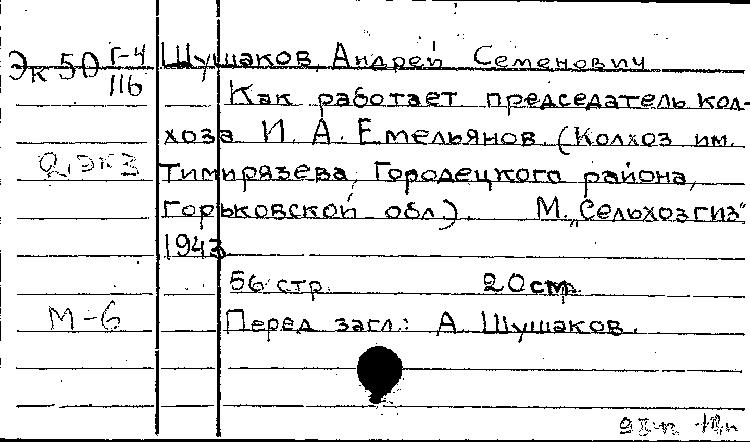 Эк 50 Г-4 Шушаков, Андрей Семенович
116
Как работает председатель кол-
хоза И. А. Емельянов. (Колхоз им.
2 экз Тимирязева, Городецкого района,
Горьковской обл). М. „Сельхозгиз"
1943
56 стр. 20 стр.
М-6 Перед загл.: А. Шушаков.